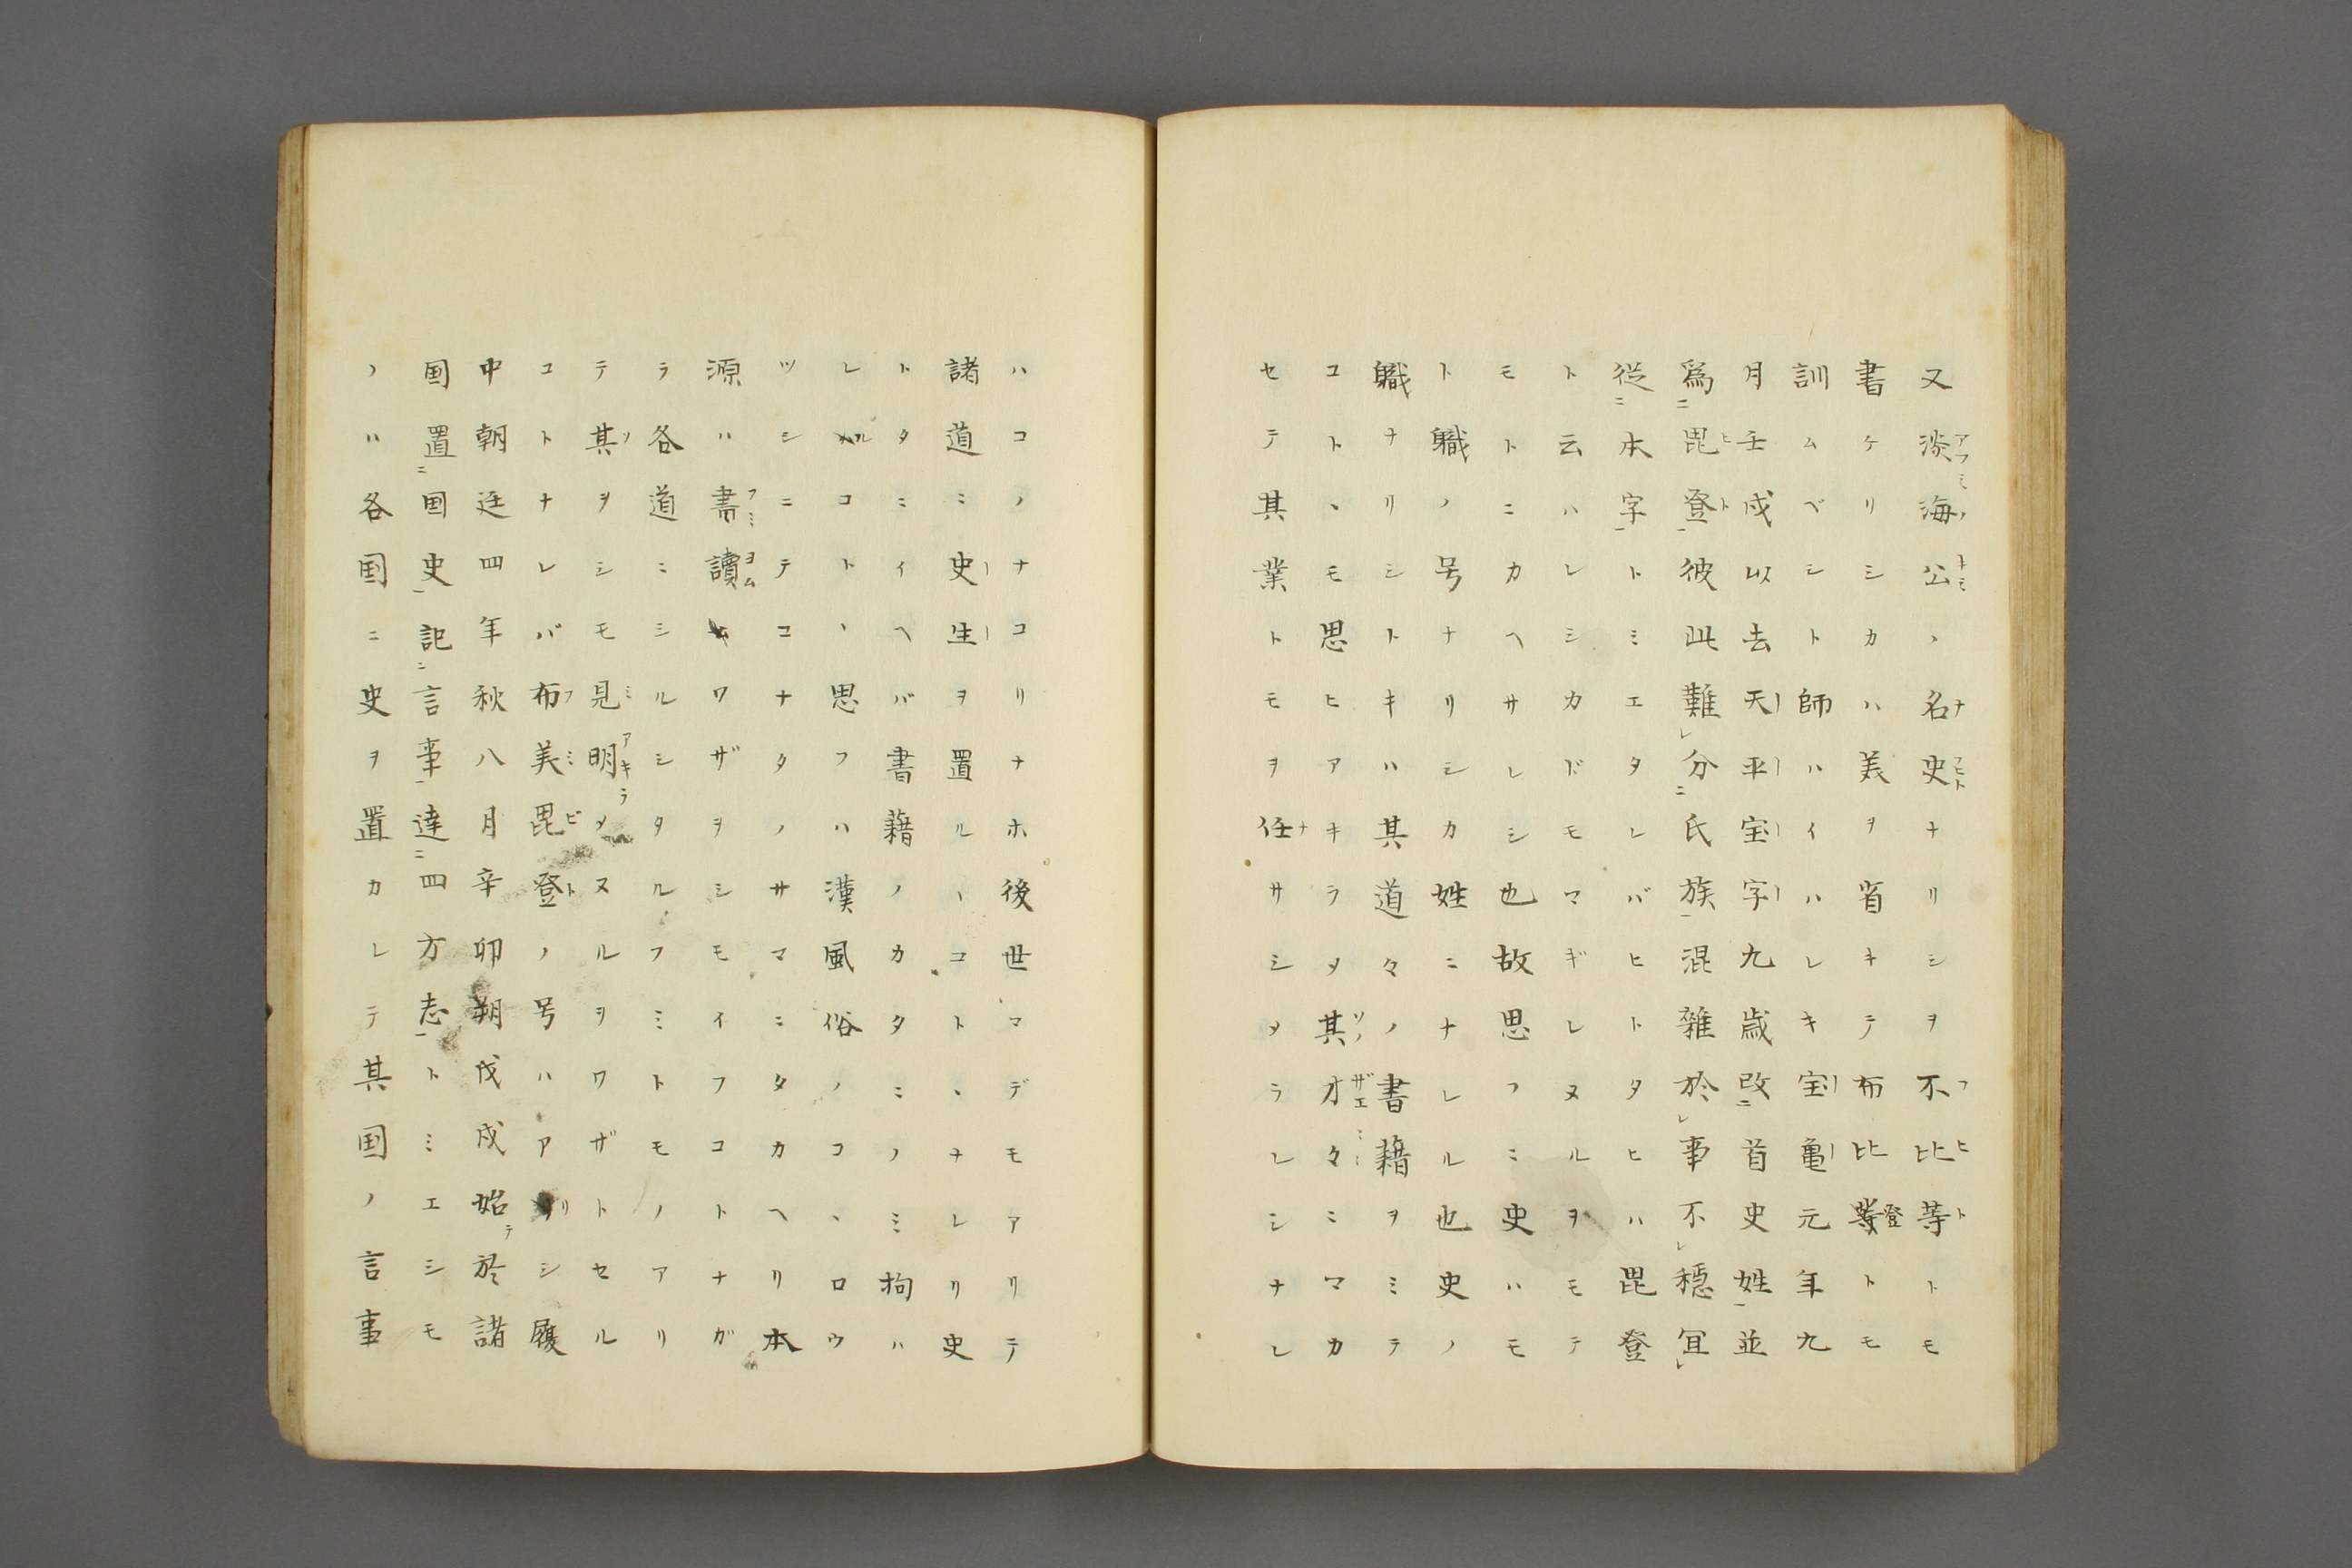 又淡海公、名史ナリシヲ不比等トモ
書ケリシカハ美ヲ省キテ布比登トモ
訓ムベシト師ハイハレキ宝亀元年九
月壬戌以去天平宝字九歳改首史姓並
為毘登彼此難分氏族混雑於事不穏宜
従本字トミエタレバヒトタヒハ毘登
ト云ハレシカドモマギレヌルヲモテ
モトニカヘサレシ也故思フニ史ハモ
ト職ノ号ナリシカ姓ニナレル也史ノ
職ナリシトキハ其道々ノ書籍ヲミテ
コト、モ思ヒアキラメ其才々ニマカ
セテ其業トモヲ任サシメラレシナレ
ハコノナコリナホ後世マデモアリテ
諸道ニ史生ヲ置ル、コト、ナレリ史
トタニイヘバ書籍ノカタニノミ拘ハ
レルコト、思フハ漢風俗ノコ、ロウ
ツシニテコナタノサマニタカヘリ本
源ハ書讀ワザヲシモイフコトナガ
ラ各道ニミルシタルフミトモノアリ
テ其ヲシモ見明ラメヌルヲワザトセル
コトナレバ布美毘登ノ号ハアリシ履
中朝廷四年秋八月辛卯朔戊戌始テ於諸
国置国史記言事達四方志トミエシモ
ノハ各国ニ史ヲ置カレテ其国ノ言事